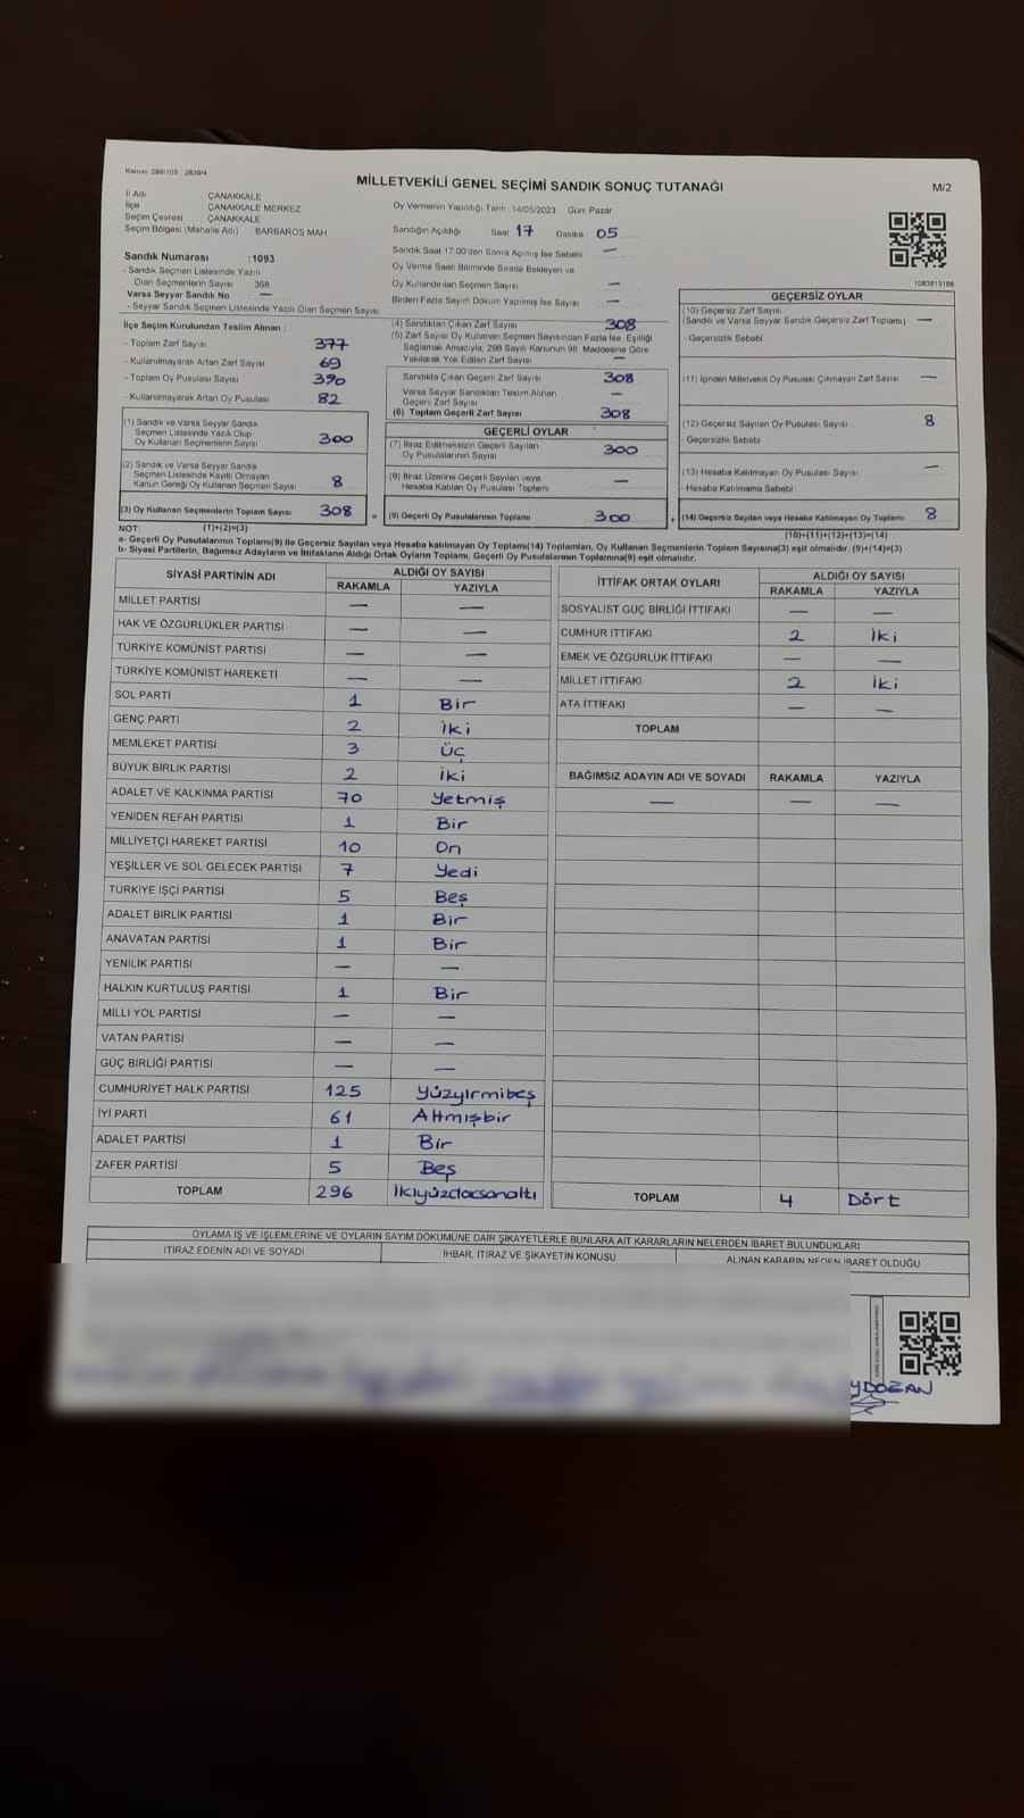 MİLLETVEKİLİ GENEL SEÇİMİ SANDIK SONUÇ TUTANAĞI
M/2
İl Adı : ÇANAKKALE
İlçe : ÇANAKKALE MERKEZ
Seçim Çevresi : ÇANAKKALE
Seçim Bölgesi (Mahalle Adı) BARBAROS MAH
Oy Vermenin Yapıldığı Tarih : 14/05/2023 Gün: Pazar
Sandığın Açıldığı Saat 17 Dakika 05
Sandık Saat 17.00'den Sonra Açılmış İse Sebebi —
Oy Verme Saati Bitiminde Sırada Bekleyen ve
Oy Kullandırılan Seçmen Sayısı —
Birden Fazla Sayım Döküm Yapılmış İse Sayısı —
Sandık Numarası : 1093
- Sandık Seçmen Listesinde Yazılı
Olan Seçmenlerin Sayısı 368
Varsa Seyyar Sandık No —
- Seyyar Sandık Seçmen Listesinde Yazılı Olan Seçmen Sayısı
İlçe Seçim Kurulundan Teslim Alınan :
- Toplam Zarf Sayısı 377
- Kullanılmayarak Artan Zarf Sayısı 69
- Toplam Oy Pusulası Sayısı 390
- Kullanılmayarak Artan Oy Pusulası 82
(1) Sandık ve Varsa Seyyar Sandık
Seçmen Listesinde Yazılı Olup
Oy Kullanan Seçmenlerin Sayısı 300
(2) Sandık ve Varsa Seyyar Sandık
Seçmen Listesinde Kayıtlı Olmayan
Kanun Gereği Oy Kullanan Seçmen Sayısı 8
(3) Oy Kullanan Seçmenlerin Toplam Sayısı 308
(1)+(2)=(3)
(4) Sandıktan Çıkan Zarf Sayısı 308
(5) Zarf Sayısı Oy Kullanan Seçmen Sayısından Fazla İse, Eşitliği
Sağlamak Amacıyla, 298 Sayılı Kanunun 98. Maddesine Göre
Yakılarak Yok Edilen Zarf Sayısı —
Sandıkta Çıkan Geçerli Zarf Sayısı 308
Varsa Seyyar Sandıktan Teslim Alınan
Geçerli Zarf Sayısı —
(6) Toplam Geçerli Zarf Sayısı 308
GEÇERLİ OYLAR
(7) İtiraz Edilmeksizin Geçerli Sayılan
Oy Pusulalarının Sayısı 300
(8) İtiraz Üzerine Geçerli Sayılan veya
Hesaba Katılan Oy Pusulası Toplamı —
= (9) Geçerli Oy Pusulalarının Toplamı 300
10838 13186
GEÇERSİZ OYLAR
(10) Geçersiz Zarf Sayısı
(Sandık ve Varsa Seyyar Sandık Geçersiz Zarf Toplamı) —
- Geçersizlik Sebebi
(11) İçinden Milletvekili Oy Pusulası Çıkmayan Zarf Sayısı —
(12) Geçersiz Sayılan Oy Pusulası Sayısı 8
Geçersizlik Sebebi
(13) Hesaba Katılmayan Oy Pusulası Sayısı —
- Hesaba Katılmama Sebebi
+ (14) Geçersiz Sayılan veya Hesaba Katılmayan Oy Toplamı 8
(10)+(11)+(12)+(13)=(14)
NOT:
a- Geçerli Oy Pusulalarının Toplamı(9) ile Geçersiz Sayılan veya Hesaba katılmayan Oy Toplamı(14) Toplamları, Oy Kullanan Seçmenlerin Toplam Sayısına(3) eşit olmalıdır. (9)+(14)=(3)
b- Siyasi Partilerin, Bağımsız Adayların ve İttifakların Aldığı Ortak Oyların Toplamı, Geçerli Oy Pusulalarının Toplamına(9) eşit olmalıdır.
SİYASİ PARTİNİN ADI ALDIĞI OY SAYISI
RAKAMLA YAZIYLA
MİLLET PARTİSİ — —
HAK VE ÖZGÜRLÜKLER PARTİSİ — —
TÜRKİYE KOMÜNİST PARTİSİ — —
TÜRKİYE KOMÜNİST HAREKETİ — —
SOL PARTİ 1 Bir
GENÇ PARTİ 2 İki
MEMLEKET PARTİSİ 3 Üç
BÜYÜK BİRLİK PARTİSİ 2 İki
ADALET VE KALKINMA PARTİSİ 70 Yetmiş
YENİDEN REFAH PARTİSİ 1 Bir
MİLLİYETÇİ HAREKET PARTİSİ 10 On
YEŞİLLER VE SOL GELECEK PARTİSİ 7 Yedi
TÜRKİYE İŞÇİ PARTİSİ 5 Beş
ADALET BİRLİK PARTİSİ 1 Bir
ANAVATAN PARTİSİ 1 Bir
YENİLİK PARTİSİ — —
HALKIN KURTULUŞ PARTİSİ 1 Bir
MİLLİ YOL PARTİSİ — —
VATAN PARTİSİ — —
GÜÇ BİRLİĞİ PARTİSİ — —
CUMHURİYET HALK PARTİSİ 125 Yüzyirmibeş
İYİ PARTİ 61 Altmışbir
ADALET PARTİSİ 1 Bir
ZAFER PARTİSİ 5 Beş
TOPLAM 296 İkiyüzdoksanaltı
İTTİFAK ORTAK OYLARI ALDIĞI OY SAYISI
RAKAMLA YAZIYLA
SOSYALİST GÜÇ BİRLİĞİ İTTİFAKI — —
CUMHUR İTTİFAKI 2 İki
EMEK VE ÖZGÜRLÜK İTTİFAKI — —
MİLLET İTTİFAKI 2 İki
ATA İTTİFAKI — —
TOPLAM
BAĞIMSIZ ADAYIN ADI VE SOYADI RAKAMLA YAZIYLA
— — —
TOPLAM 4 Dört
OYLAMA İŞ VE İŞLEMLERİNE VE OYLARIN SAYIM DÖKÜMÜNE DAİR ŞİKAYETLERLE BUNLARA AİT KARARLARIN NELERDEN İBARET BULUNDUKLARI
İTİRAZ EDENİN ADI VE SOYADI İHBAR, İTİRAZ VE ŞİKAYETİN KONUSU ALINAN KARARIN NEDEN İBARET OLDUĞU
YDOĞAN